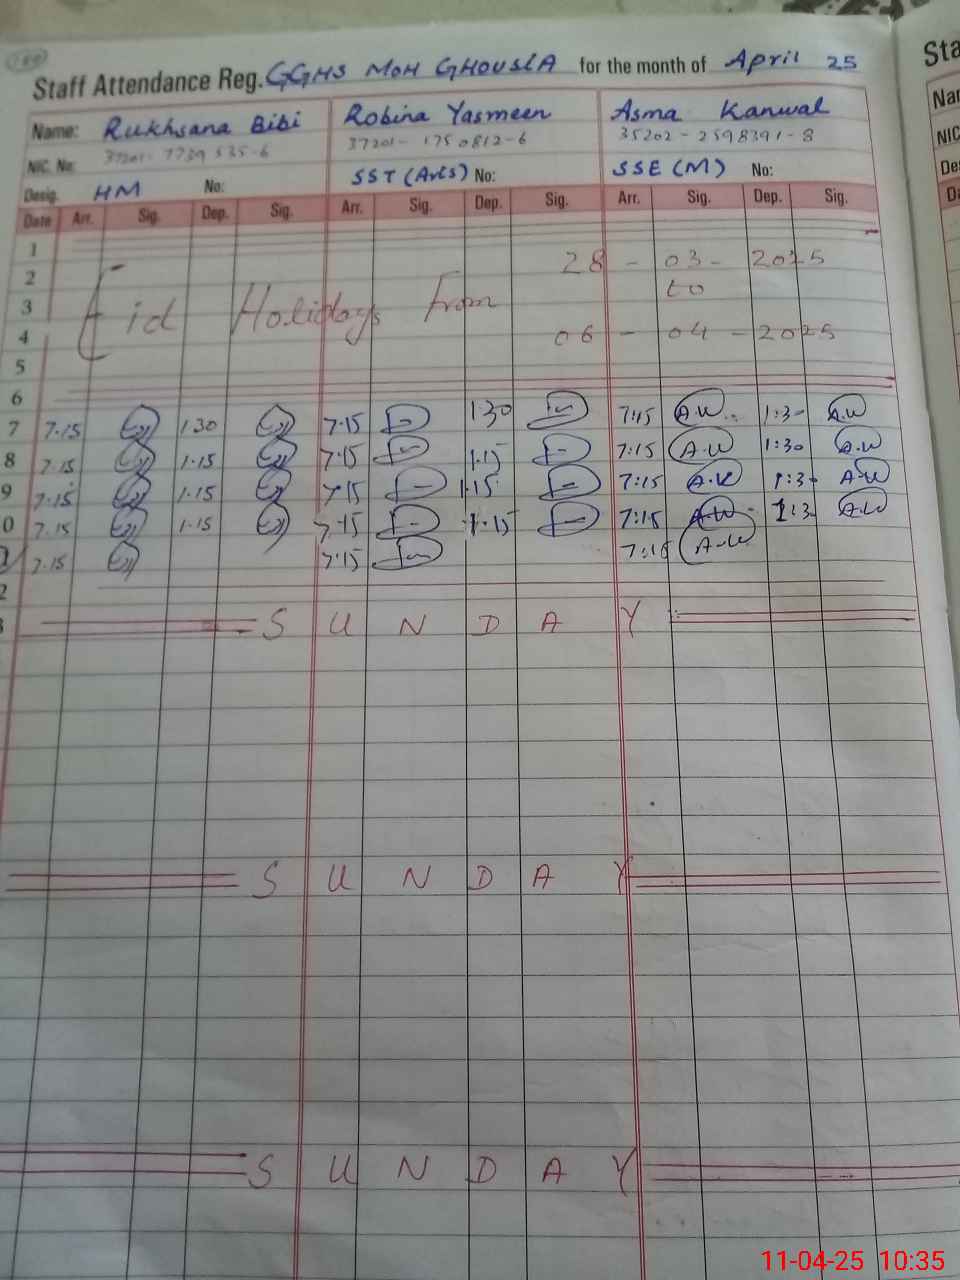 Staff Attendance Reg. GGHS MOH GHOUSIA for the month of April 25
Name: Rukhsana Bibi Robina Yasmeen Asma Kanwal
NIC. No: 37201-7739535-6 37201-1750812-6 35202-2598391-8
Desig. HM No: SST (Arts) No: SSE (M) No:
Date Arr. Sig. Dep. Sig. Arr. Sig. Dep. Sig. Arr. Sig. Dep. Sig.
1
2 28 - 03 - 2025
3 Eid Holidays From to
4 06 - 04 - 2025
5
6
7 7.15 1.30 7.15 1.30 7:15 A.W 1:3- A.W
8 7.15 1.15 7.15 1.15 7:15 A.W 1:30 A.W
9 7.15 1.15 7.15 1.15 7:15 A.K 1:3- A.W
0 7.15 1.15 7.15 1.15 7:15 A.W 1:3- A.W
7.15 7.15 7:16 A.W
2
S U N D A Y
S U N D A Y
S U N D A Y
Sta
Nar
NIC
De
Da
11-04-25 10:35